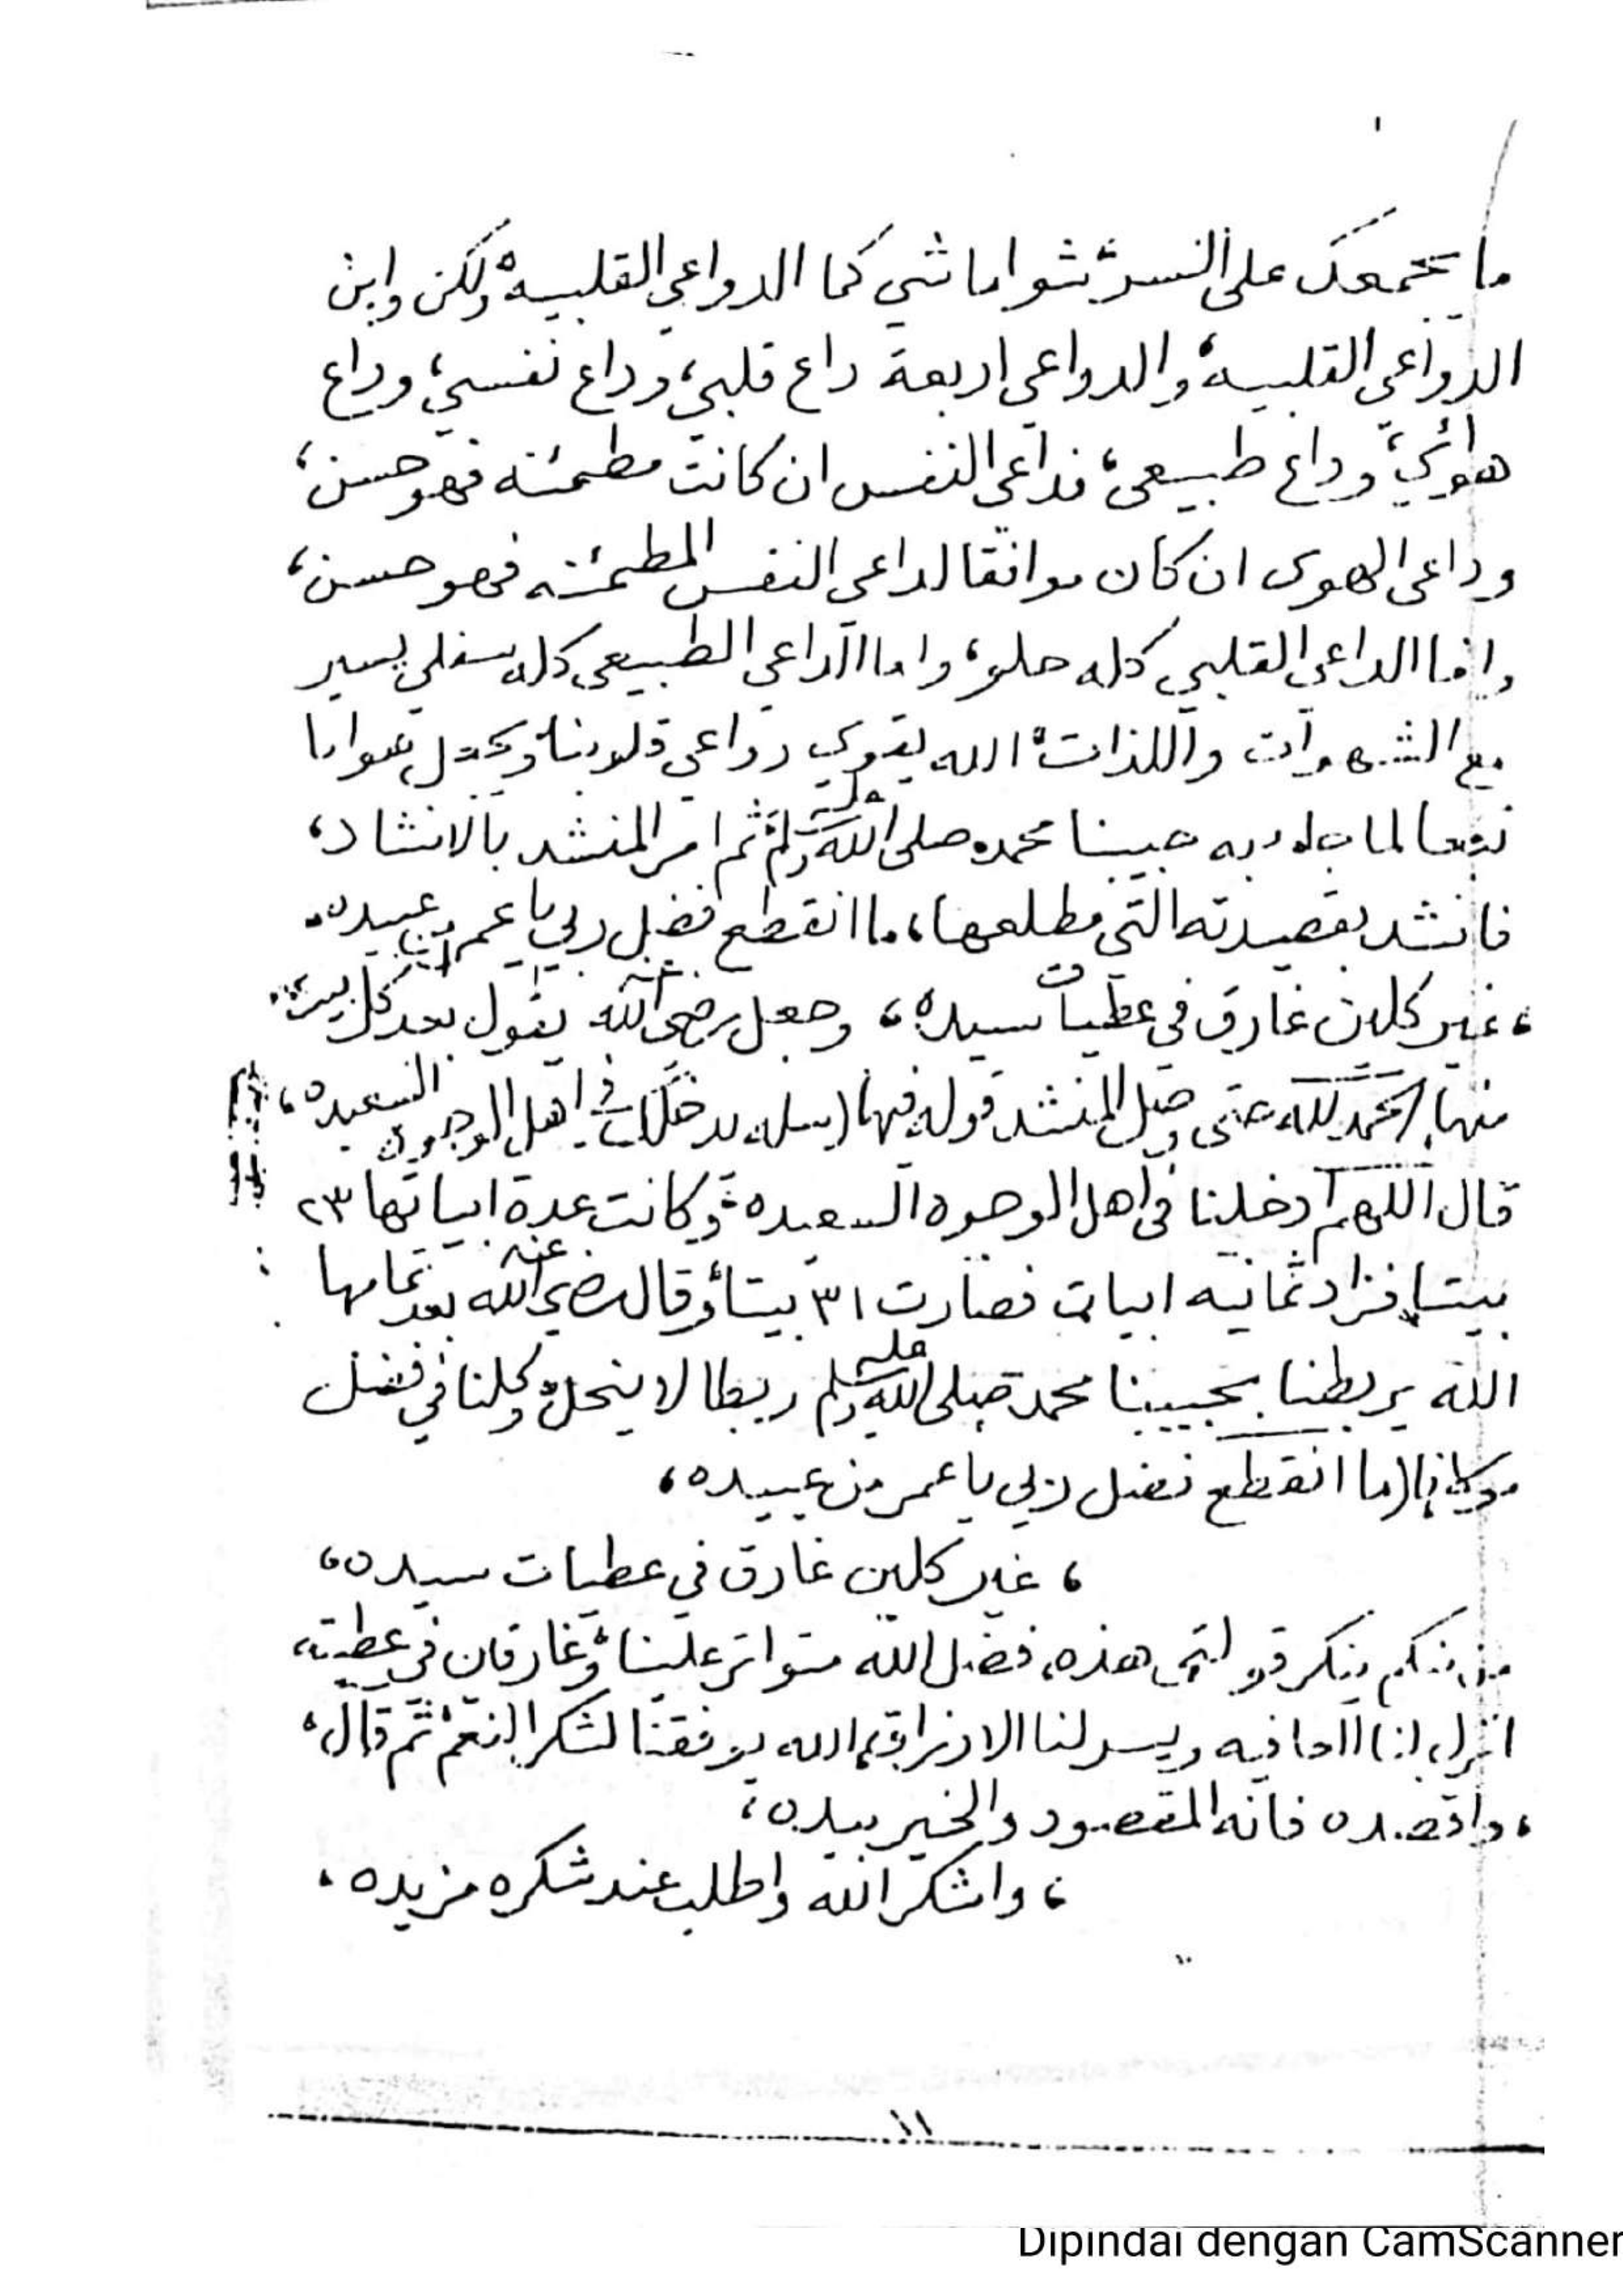 ما يجمعك على السر شو اما شي كما الدواعي القلبيه، ولكن واين
الدواعي القلبيه، والدواعي اربعة داع قلبي، وداع نفسي، وداع
هوائي، وداع طبيعي، فداعي النفس ان كانت مطمئنه فهو حسن،
وداعي الهوى ان كان موافقا لداعي النفس المطمئنه فهو حسن،
واما الداعي القلبي كله حلو، واما الداعي الطبيعي كله سفلي يسير
مع الشهوات واللذات، الله يقوي دواعي قلوبنا، ويجعل هوانا
تبعا لما جاء به حبيبنا محمد صلى الله عليه وسلم، ثم امر المنشد بالانشاد،
فانشد بقصيدته التي مطلعها، ما انقطع فضل ربي يا عمر من عبيده،
، غير كلان غارق في عطيات سيده، وجعل رضي الله عنه يقول بعد كل بيت
منها، الحمد لله حتى وصل المنشد قوله فيها في اهل الوجوه السعيده،
قال اللهم ادخلنا في اهل الوجوه السعيده، وكانت عدة ابياتها ٢٣
بيتا، فزاد ثمانيه ابيات فصارت ٣١ بيتا، وقال رضي الله عنه بعد تمامها
الله يربطنا بحبيبنا محمد صلى الله عليه وسلم ربطا لا ينحل، وكلنا في فضل
(ما انقطع فضل ربي يا عمر من عبيده،
، غير كلين غارق في عطيات سيده،
من منكم ينكر قولتي هذه، فضل الله متواتر علينا، وغارقان في عطيته،
انزل لنا العافيه ويسر لنا الارزاق، الله يوفقنا لشكر النعم، ثم قال،
، واقصده فانه المقصود والخير بيده،
، واشكر الله واطلب عند شكره مزيده،
١١
Dipindai dengan CamScanner